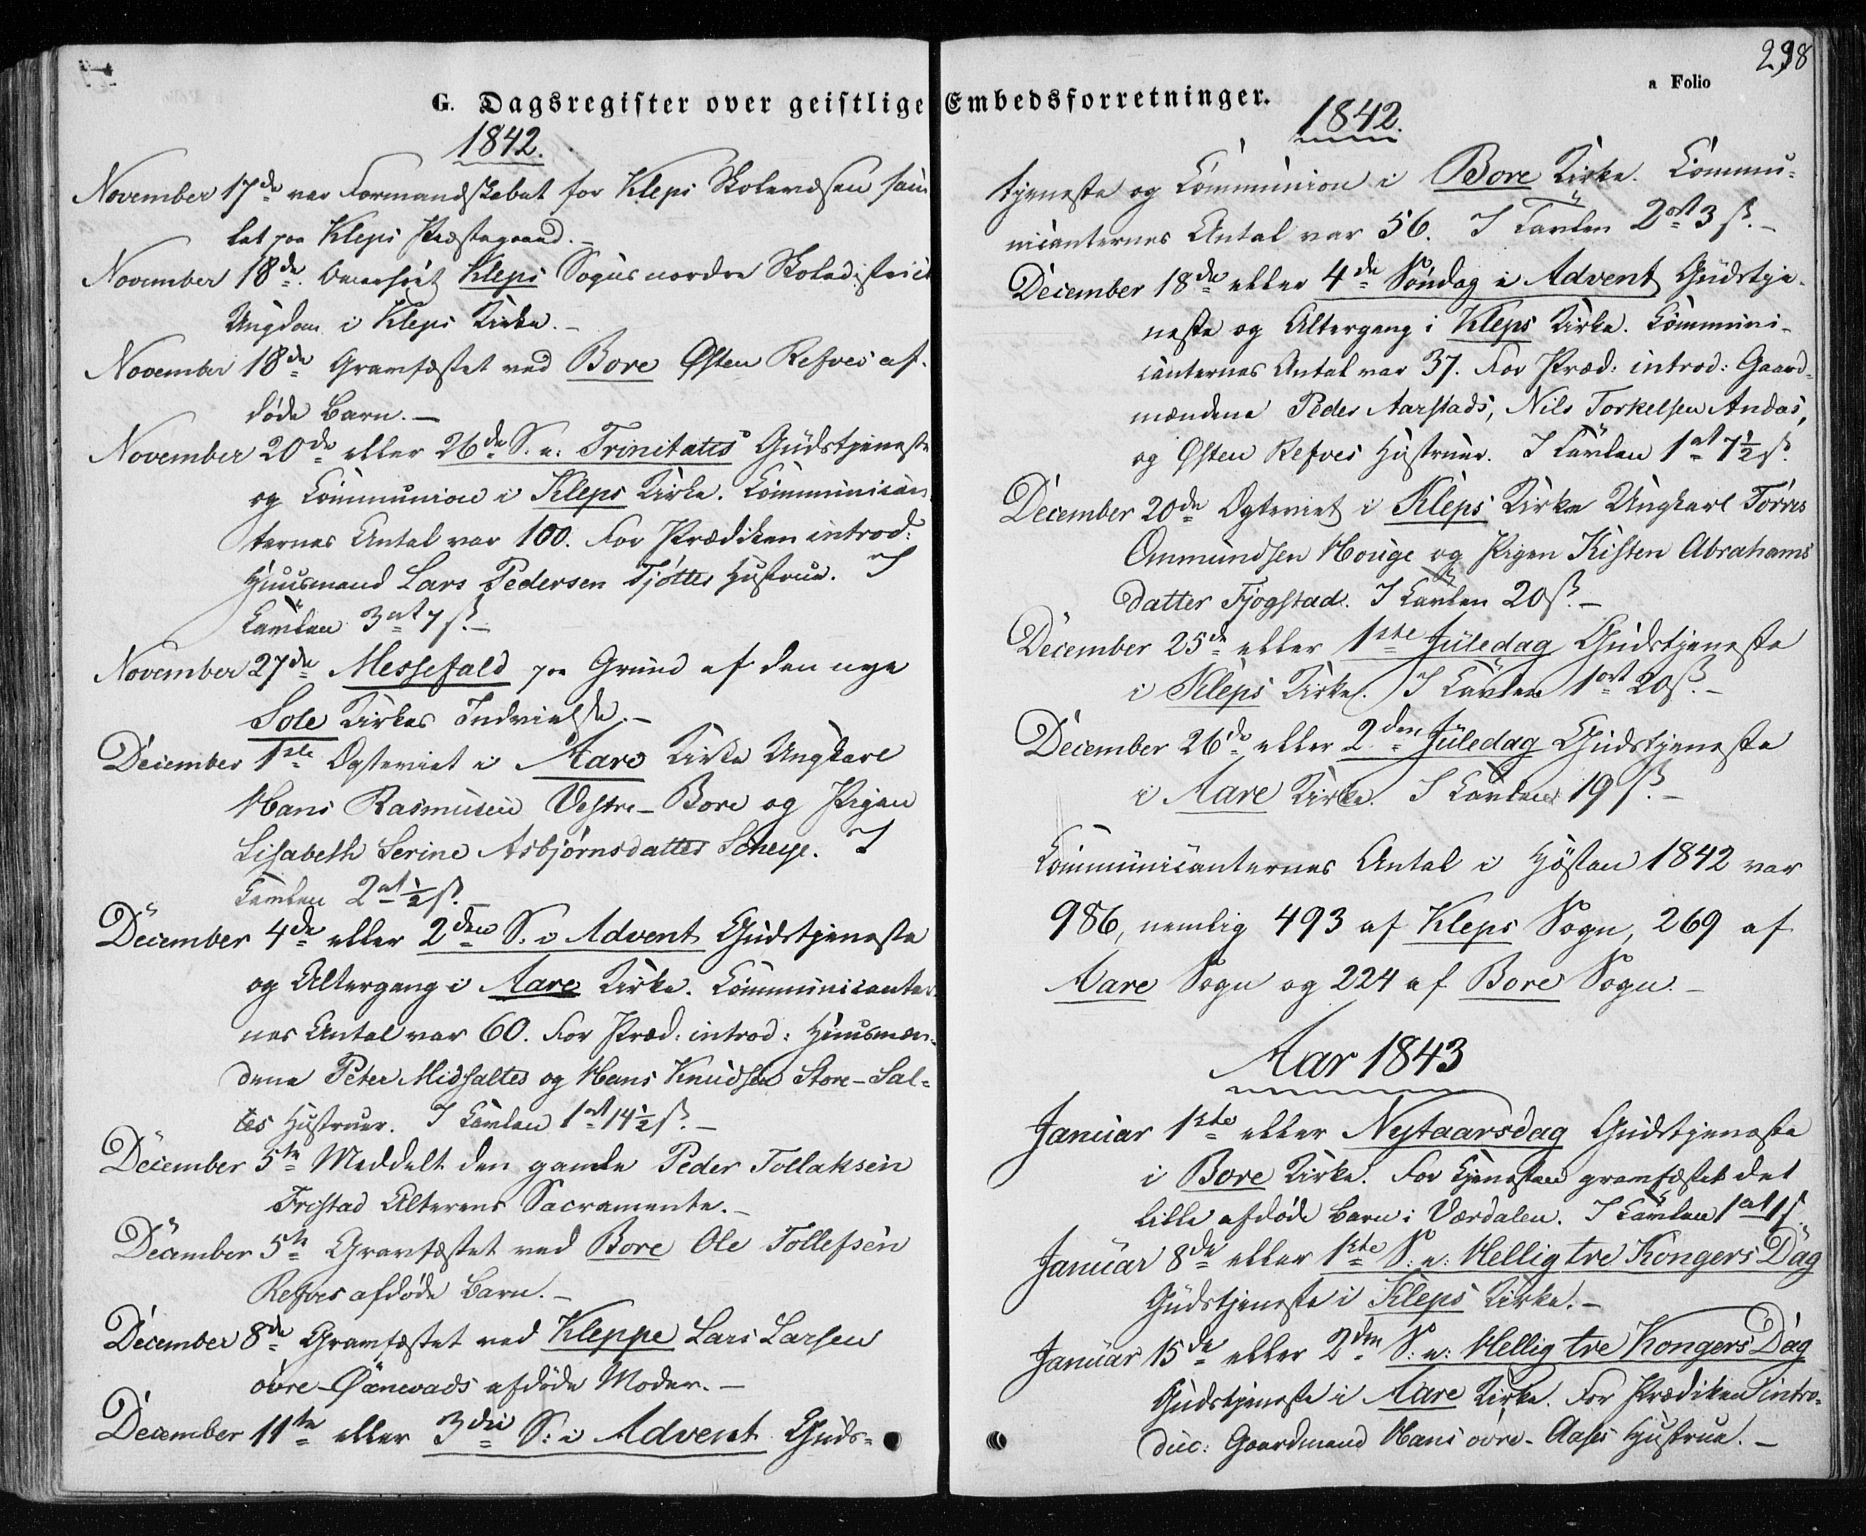 G. Dagsregister over geistlige
1842.
November 17de var Formandskabet for Kleps Skolevæsen sam
let paa Kleps Præstegaard.
November 18de. Overhört Kleps Sogns nordre Skoledistrict
Ungdom i Kleps Kirke.
November 18de Gravfæstet ved Bore Østen Refves af-
döde Barn.
November 20de eller 26de S. e. Trinitatis Gudstjeneste
og Communion i Kleps Kirke. Communican
ternes Antal var 100. For Prædiken introd:
Huusmand Lars Pedersen Tjøttes Hustrue. I
Tavlen 3 ort 7 ß.
November 27de Messefald paa Grund af den nye
Sole Kirkes Indvielse.
December 1ste Egteviet i Aare Kirke Ungkarl
Hans Rasmusen Vestre-Bore og Pigen
Lisabeth Serine Asbjørnsdatter Scheye. I
Tavlen 2 ort ½ ß.
December 4de eller 2den S. i Advent Gudstjeneste
og Altergang i Aare Kirke. Communicanter
nes Antal var 60. For Præd: introd: Huusmæn-
dene Peter Midsaltes og Hans Knudsen Store-Sal-
tes Hustruer. I Tavlen 1 ort 14½ ß.
December 5te Meddelt den gamle Peder Tollaksen
Fristad Alterens Sacramente.
December 5te Gravfæstet ved Bore Ole Tollefsen
Refves afdöde Barn.
December 8de Gravfæstet ved Kleppe Lars Larsen
övre-Øxnevads afdöde Moder.
December 11te eller 3die S: i Advent Guds-
Embedsforretninger.
a Folio
298
1842.
tjeneste og Communion i Bore Kirke. Commu-
nicanternes Antal var 56. I Tavlen 2 ort 3 ß.
December 18de eller 4de Söndag i Advent Gudstje-
neste og Altergang i Kleps Kirke. Communi-
canternes Antal var 37. For Præd: introd: Gaard-
mændene Peder Aarstads, Nils Torkelsen Andas,
og Østen Refves Hustruer. I Tavlen 1 ort 7½ ß.
December 20de Egteviet i Kleps Kirke Ungkarl Törres
Ommundsen Houge og Pigen Kisten Abrahams
datter Fjogstad. I Tavlen 20 ß.
December 25de eller 1ste Juledag Gudstjeneste
i Kleps Kirke. I Tavlen 1 ort 20 ß.
December 26de eller 2den Juledag Gudstjeneste
i Aare Kirke. I Tavlen 19 ß.
Communicanternes Antal i Hösten 1842 var
986, nemlig 493 af Kleps Sogn, 269 af
Aare Sogn og 224 af Bore Sogn.
Aar 1843
Januar 1ste eller Nytaarsdag Gudstjeneste
i Bore Kirke. For Tjenesten gravfæstet det
lille afdöde Barn i Værdalen. I Tavlen 1 ort 1 ß.
Januar 8de eller 1ste S: e: Hellig tre Kongers Dag
Gudstjeneste i Kleps Kirke.
Januar 15de eller 2den S: e: Hellig tre Kongers Dag
Gudstjeneste i Aare Kirke. For Prædiken intro-
duc: Gaardmand Hans övre-Aases Hustrue.